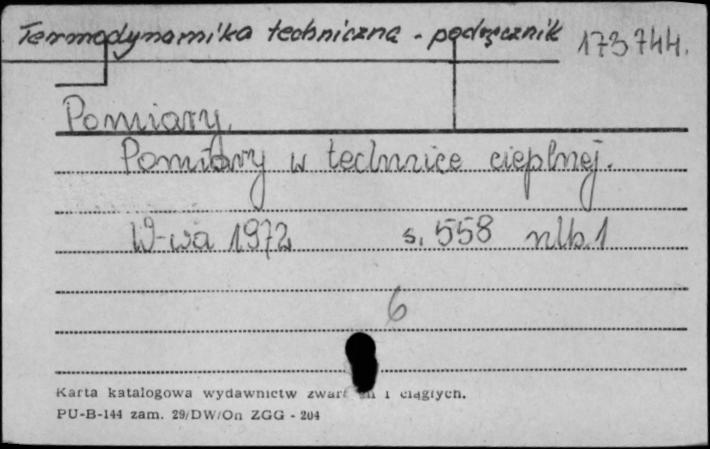 Termodynamika techniczna - podręcznik 173744.
Pomiary.
Pomiary w technice cieplnej.
W-wa 1972 s. 558 nlb. 1
6
Karta katalogowa wydawnictw i ciągłych.
PU-B-144 zam. 29/DW/On ZGG - 204